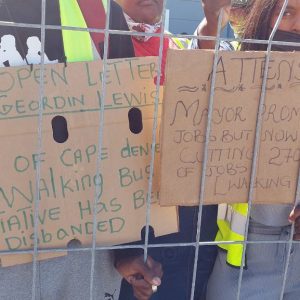 OPEN LETTER
GEORDIN LEWIS
OF CAPE denie
Walking Bus
TIATIVE HAS Be
DISBANDED
ATTEN
MAYOR PROM
JOBS BUT NOW
CUTTING 270
OF JOBS
(WALKING